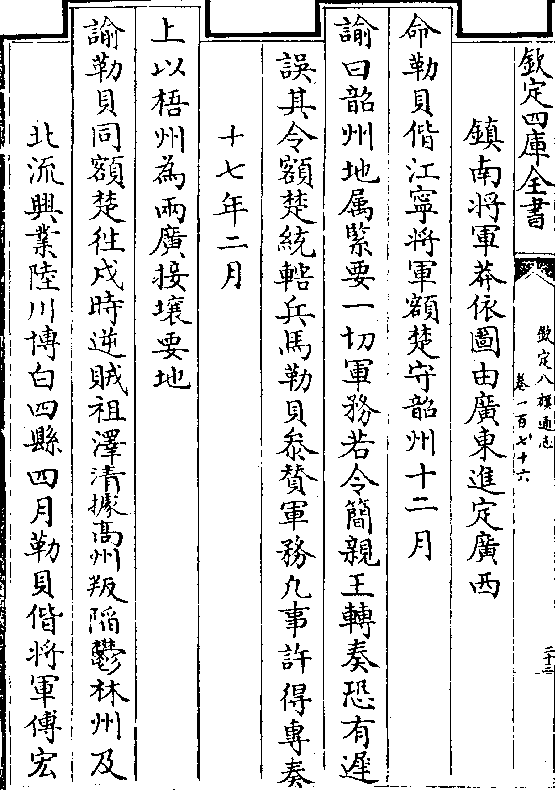 欽定四庫全書
欽定八旗通志
卷一百七十六
二十二
鎮南將軍莽依圖由廣東進定廣西
命勒貝偕江寧將軍額楚守韶州十二月
諭曰韶州地属緊要一切軍務若令簡親王轉奏恐有遲
誤其令額楚統轄兵馬勒貝叅贊軍務凡事許得專奏
十七年二月
上以梧州為兩廣接壤要地
諭勒貝同額楚往戍時逆賊祖澤清據髙州叛陷鬱林州及
北流興業陸川博白四縣四月勒貝偕將軍傅宏